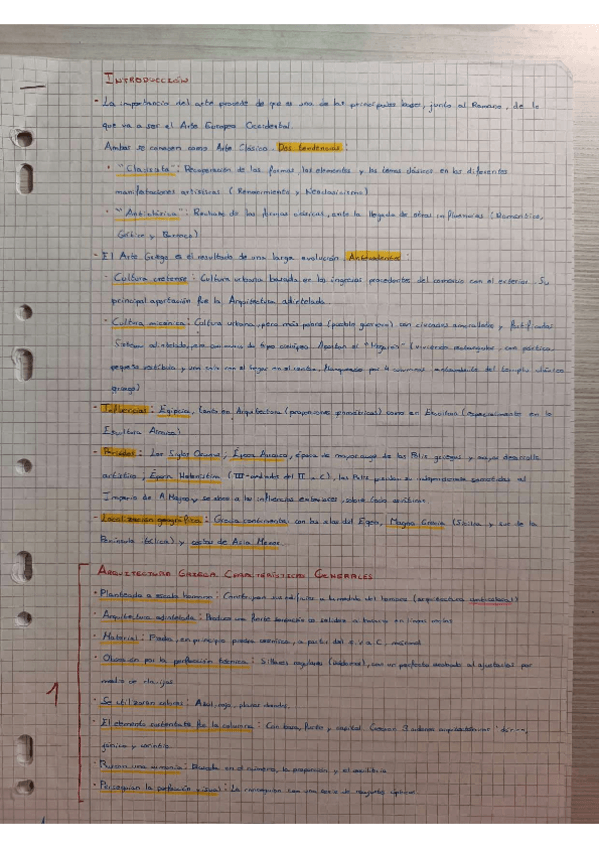 INTRODUCCIÓN
- La importancia del arte procede de que es una de las principales bases, junto al Romano, de lo
que va a ser el Arte Europeo Occidental.
Ambas se conocen como Arte Clásico. Dos tendencias:
· "Clasicista": Recuperación de las formas, los elementos y los temas clásicos en las diferentes
manifestaciones artísticas (Renacimiento y Neoclasicismo)
· "Anticlásica": Rechazo de las formas clásicas, ante la llegada de otras influencias (Románico,
Gótico y Barroco)
- El Arte Griego es el resultado de una larga evolución. Antecedentes:
- Cultura cretense: Cultura urbana basada en los ingresos procedentes del comercio con el exterior. Su
principal aportación fue la Arquitectura adintelada.
- Cultura micénica: Cultura urbana, pero más pobre (pueblo guerrero) con ciudades amuralladas y fortificadas
Sistema adintelado, con muros de tipo ciclópeo. Aportan el "Megaron" (vivienda rectangular, con pórtico,
pequeño vestíbulo y una sala con el hogar en el centro, flanqueado por 4 columnas del templo clásico
griego)
- Influencias: Egipcia, tanto en Arquitectura (proporciones geométricas) como en Escultura (especialmente en la
Escultura Arcaica)
- Periodos: Los Siglos Oscuros, Época Arcaica, época de mayor auge de las Polis griegas y mayor desarrollo
artístico, Época Helenística (III-mediados del II a.C), las Polis pierden su independencia sometidas al
Imperio de A.Magno y se abre a las influencias exteriores, sobre todo
- Localización geográfica: Grecia continental con las islas del Egeo, Magna Grecia (Sicilia y sur de la
Península itálica) y costas de Asia Menor.
ARQUITECTURA GRIEGA CARACTERÍSTICAS GENERALES
· Planteada a escala humana: Construyen sus edificios a la medida del hombre (arquitectura)
· Arquitectura adintelada: Produce una fuerte sensación de solidez a basarse en líneas rectas
· Material: Piedra, en principio piedra arenisca, a partir del s.V a.C, mármol
· Obsesión por la perfección técnica: Sillares regulares, con un perfecto acabado al ajustarlos por
medio de clavijas.
· Se utilizaron colores: Azul, rojo,
· El elemento sustentante fue la columna: Con basa, fuste y capital. Crearon 3 órdenes arquitectónicos: dórico,
jónico y corintio
· Buscan una armonía: Basada en el número, la proporción y el equilibrio
· Perseguían la perfección visual: La conseguían con una serie de reajustes ópticos.
1